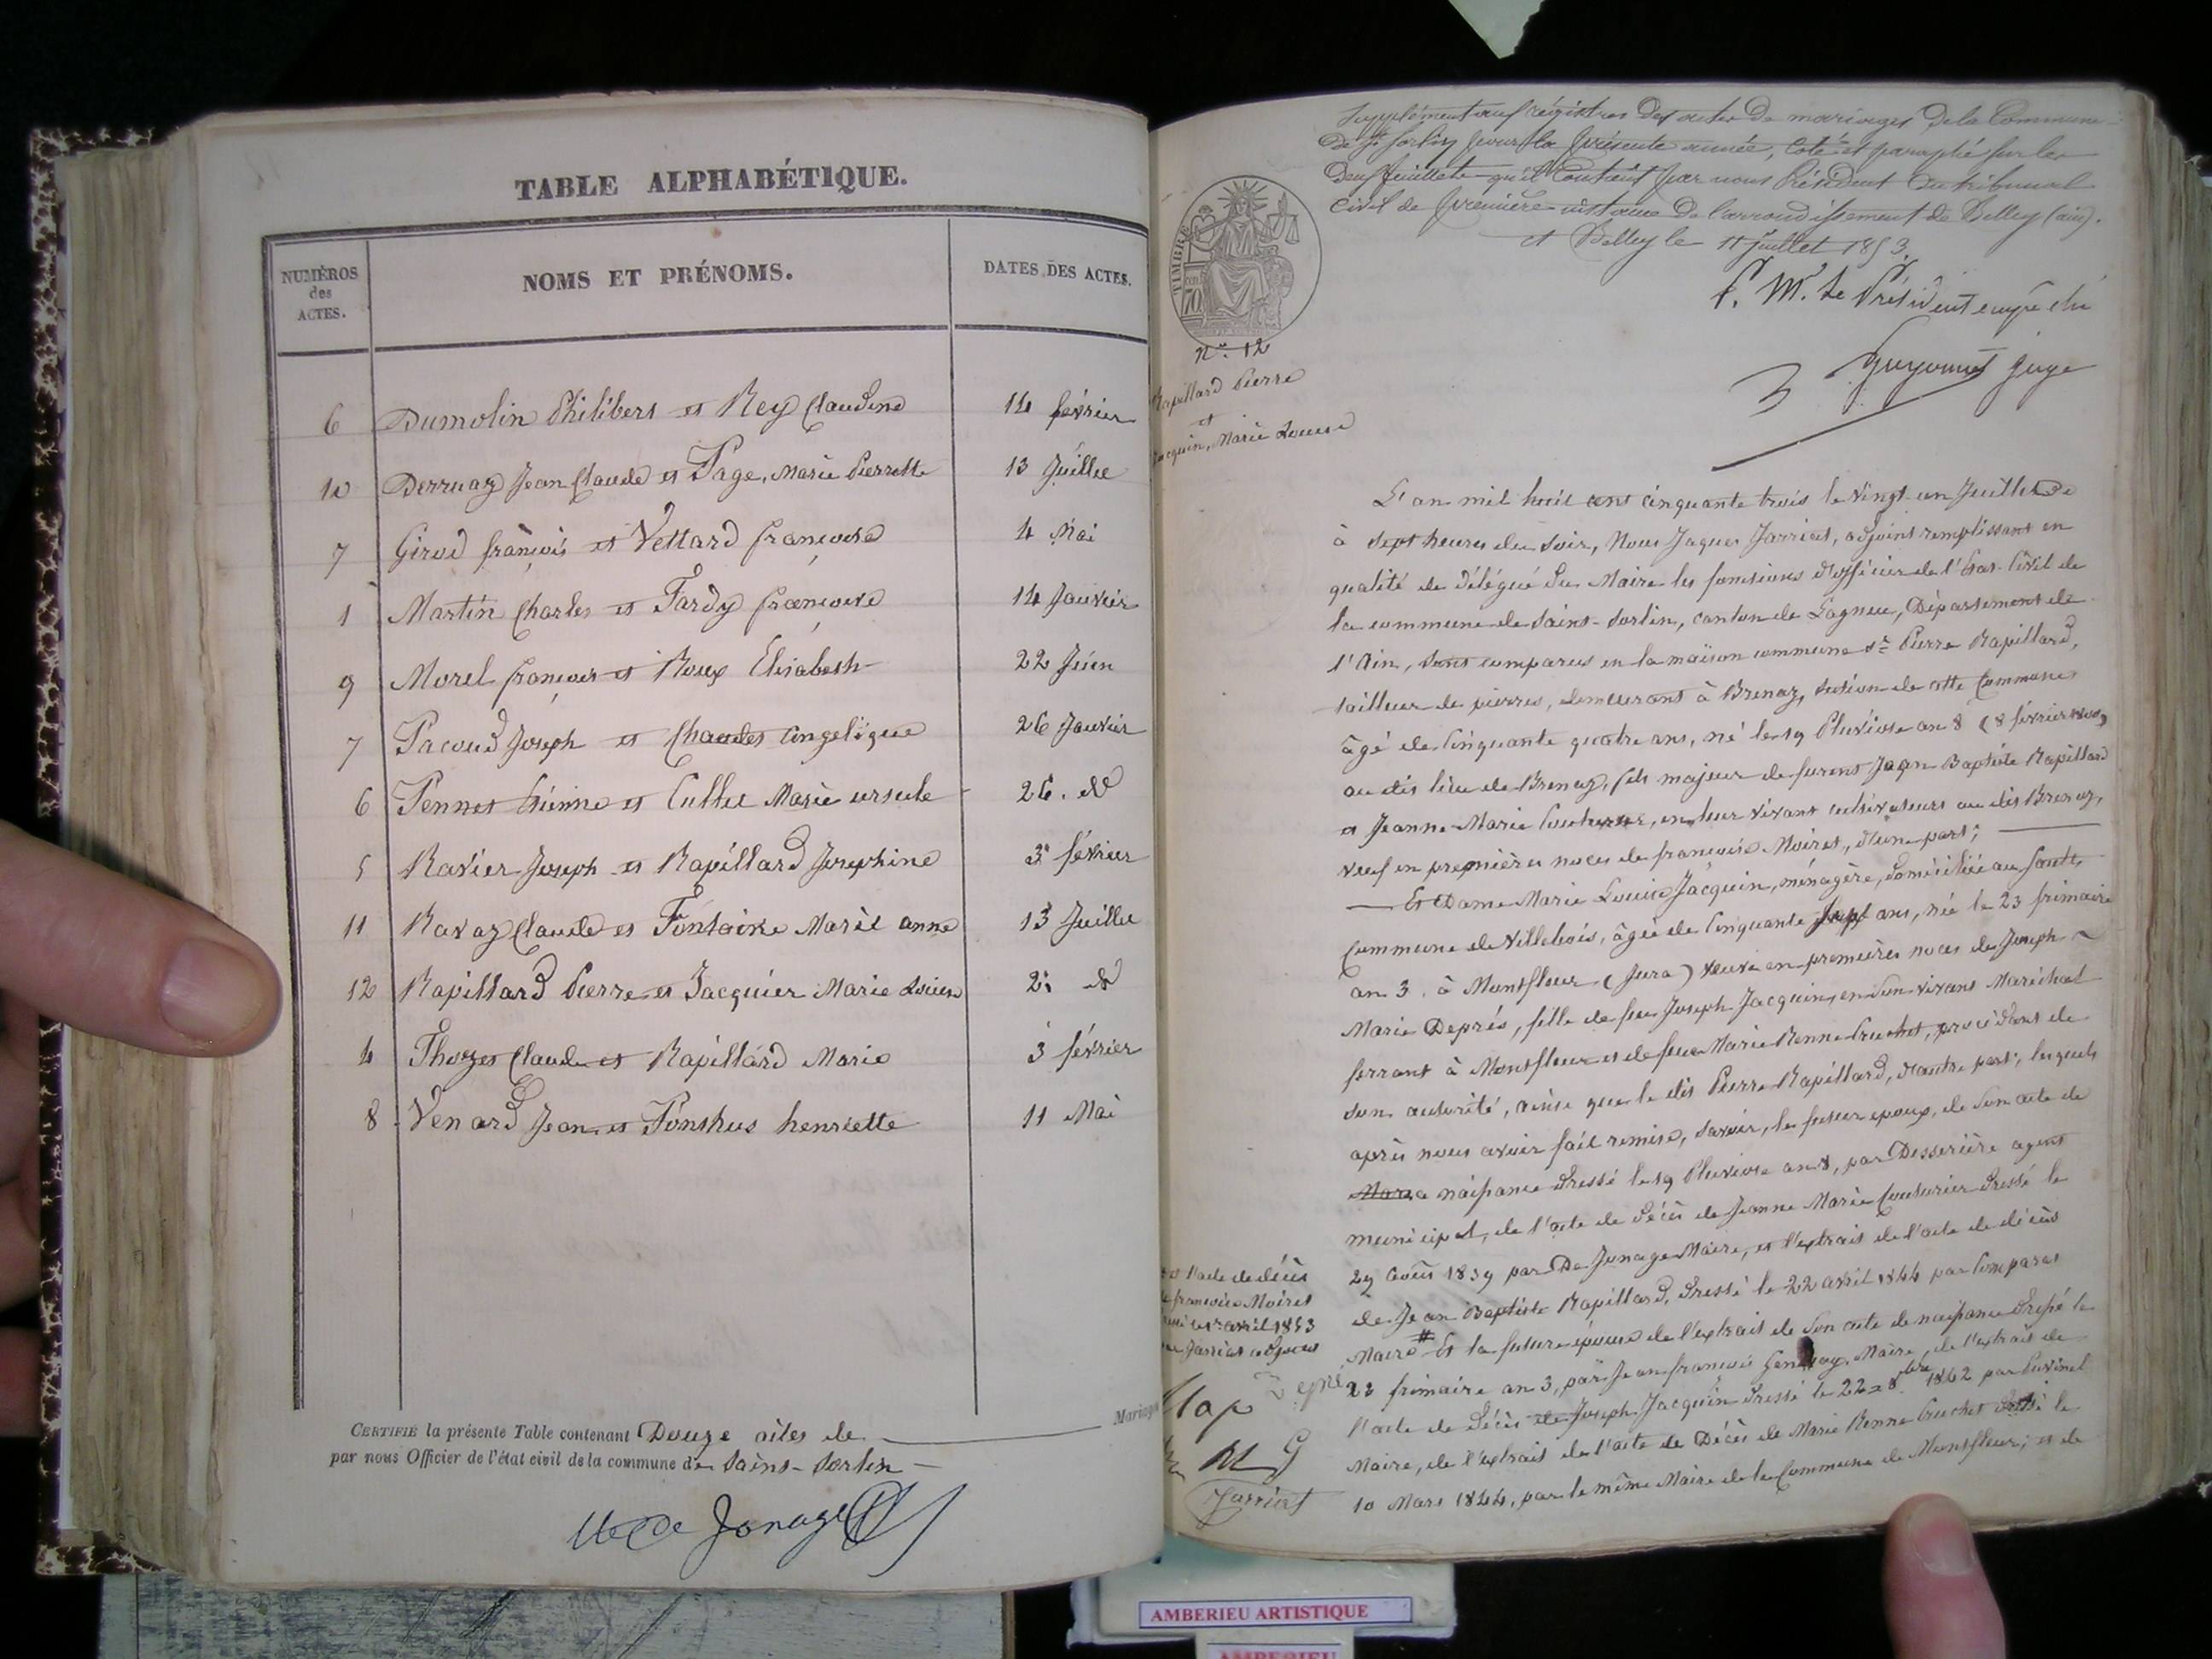 TABLE ALPHABÉTIQUE.
NUMÉROS des ACTES. NOMS ET PRÉNOMS. DATES DES ACTES.
6 Dumolin Philibert et Rey Claudine 14 février
10 Derruaz Jean Claude et Page, Marie Pierrette 13 Juillet
7 Girod françois et Vettard françoise 4 Mai
1 Martin Charles et Tardy françoise 14 Janvier
9 Morel françois et Roux Elisabeth 22 Juin
7 Pacoud Joseph et Angelique 26 Janvier
6 Pennet Etienne et Cullet Marie ursule 26. do
5 Ravier Joseph et Rapillard Josephine 3 février
11 Ravaz Claude et Fontaine Marie anne 13 Juillet
12 Rapillard Pierre et Jacquier Marie Louise 21 do
4 Claude et Rapillard Marie 3 février
8 Venard Jean et Ponthus henriette 11 Mai
CERTIFIÉ la présente Table contenant Douze actes de Mariage
par nous Officier de l'état civil de la commune de Saint-Sorlin
de Jonage
Supplément aux régistres des actes de mariages de la Commune
de St Sorlin pour la présente année, coté et paraphé sur les
deux feuillets qu'il contient par nous Président du tribunal
civil de première instance de l'arrondissement de Belley (ain).
à Belley le 11 Juillet 1853.
P. Mr. le Président empêché
juge
TIMBRE
70
No. 12
Rapillard Pierre
et
Jacquin, Marie Louise
L'an mil huit cent cinquante trois le vingt-un Juillet
à sept heures du soir, Nous Jaques Jarriat, adjoint remplissant en
qualité de délégué du Maire les fonctions d'officier de l'Etat-Civil de
la commune de Saint-Sorlin, canton de Lagnieu, Département de
l'Ain, sont comparus en la maison commune sr Pierre Rapillard,
tailleur de pierres, demeurant à Brenaz, section de cette Commune
âgé de cinquante quatre ans, né le 19 Pluviose an 8 (8 février 1800)
au dit lieu de Brenaz, fils majeur de furent Jean Baptiste Rapillard
et Jeanne-Marie Couturier, en leur vivant cultivateurs au dit Brenaz,
veuf en premières noces de françoise Moiret, d'une part;
Et Dame Marie Louise Jacquin, ménagère, domiciliée au
Commune de Villebois, âgée de cinquante ans, née le 23 frimaire
an 3. à Montfleur (Jura) veuve en premières noces de Joseph
Marie Deprés, fille de feu Joseph Jacquin, en son vivant Maréchal
ferrant à Montfleur et de feue Marie Renne Cruchet, procédant de
son autorité, ainsi que le dit Pierre Rapillard, d'autre part; lesquels
après nous avoir fait remise, savoir, le futur epoux, de son acte de
naissance dressé le 19 Pluviose an 8, par Desserière agent
municipal, de l'acte de décès de Jeanne Marie Couturier dressé le
29 Août 1839 par De Jonage Maire, et l'extrait de l'acte de décès
de Jean Baptiste Rapillard, dressé le 22 avril 1844 par Comparat
Maire # Et la future épouse de l'extrait de son acte de naissance dressé le
23 frimaire an 3, par Jean françois Maire, de l'extrait de
l'acte de décès de Joseph Jacquin dressé le 22 8bre 1842 par
Maire, de l'extrait de l'acte de Décès de Marie Renne Cruchet dressé le
10 Mars 1844, par le même Maire de la Commune de Montfleur; et de
# l'acte de décès
de françoise Moiret
dressé le 1er avril 1853
par Jarriat adjoint
Jarriat
AMBERIEU ARTISTIQUE
AMBERIEU